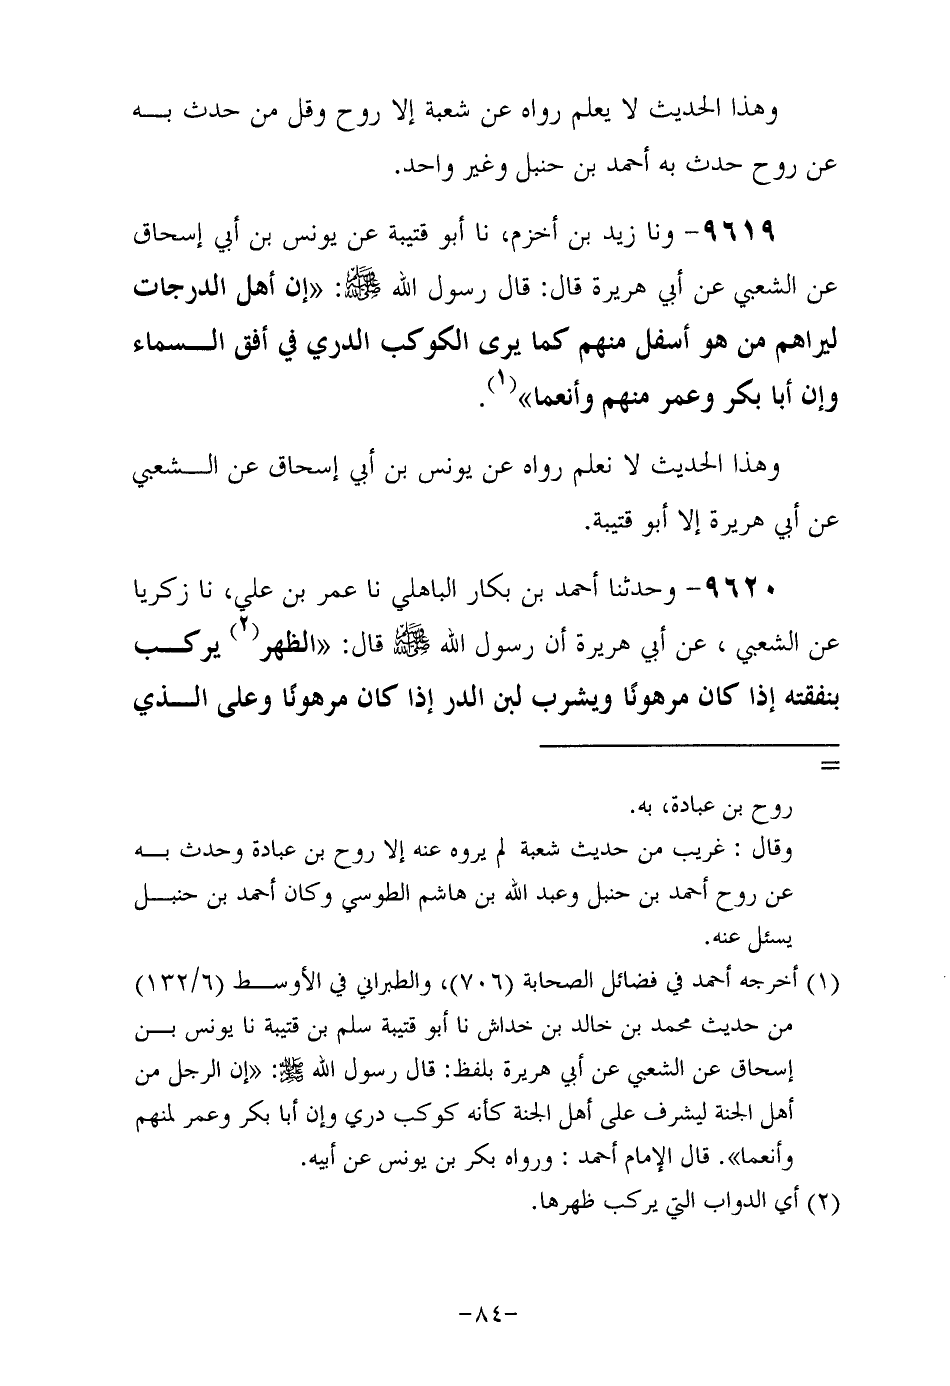 وهذا الحديث لا يعلم رواه عن شعبة إلا روح وقل من حدث بـــه
عن روح حدث به أحمد بن حنبل وغير واحد.
٩٦١٩- ونا زيد بن أخزم، نا أبو قتيبة عن يونس بن أبي إسحاق
عن الشعبي عن أبي هريرة قال: قال رسول الله ﷺ: «إن أهل الدرجات
ليراهم من هو أسفل منهم كما يرى الكوكب الدري في أفق الـــسماء
وإن أبا بكر وعمر منهم وأنعما»(١).
وهذا الحديث لا نعلم رواه عن يونس بن أبي إسحاق عن الـــشعبي
عن أبي هريرة إلا أبو قتيبة.
٩٦٢٠- وحدثنا أحمد بن بكار الباهلي نا عمر بن علي، نا زكريا
عن الشعبي ، عن أبي هريرة أن رسول الله ﷺ قال: «الظهر(٢) يركـــب
بنفقته إذا كان مرهونًا ويشرب لبن الدر إذا كان مرهونًا وعلى الـــذي
=
روح بن عبادة، به.
وقال : غريب من حديث شعبة لم يروه عنه إلا روح بن عبادة وحدث بـــه
عن روح أحمد بن حنبل وعبد الله بن هاشم الطوسي وكان أحمد بن حنبـــل
يسئل عنه.
(١) أخرجه أحمد في فضائل الصحابة (٧٠٦)، والطبراني في الأوســـط (١٣٢/٦)
من حديث محمد بن خالد بن خداش نا أبو قتيبة سلم بن قتيبة نا يونس بـــن
إسحاق عن الشعبي عن أبي هريرة بلفظ: قال رسول الله ﷺ: «إن الرجل من
أهل الجنة ليشرف على أهل الجنة كأنه كوكب دري وإن أبا بكر وعمر لمنهم
وأنعما». قال الإمام أحمد : ورواه بكر بن يونس عن أبيه.
(٢) أي الدواب التي يركب ظهرها.
-٨٤-